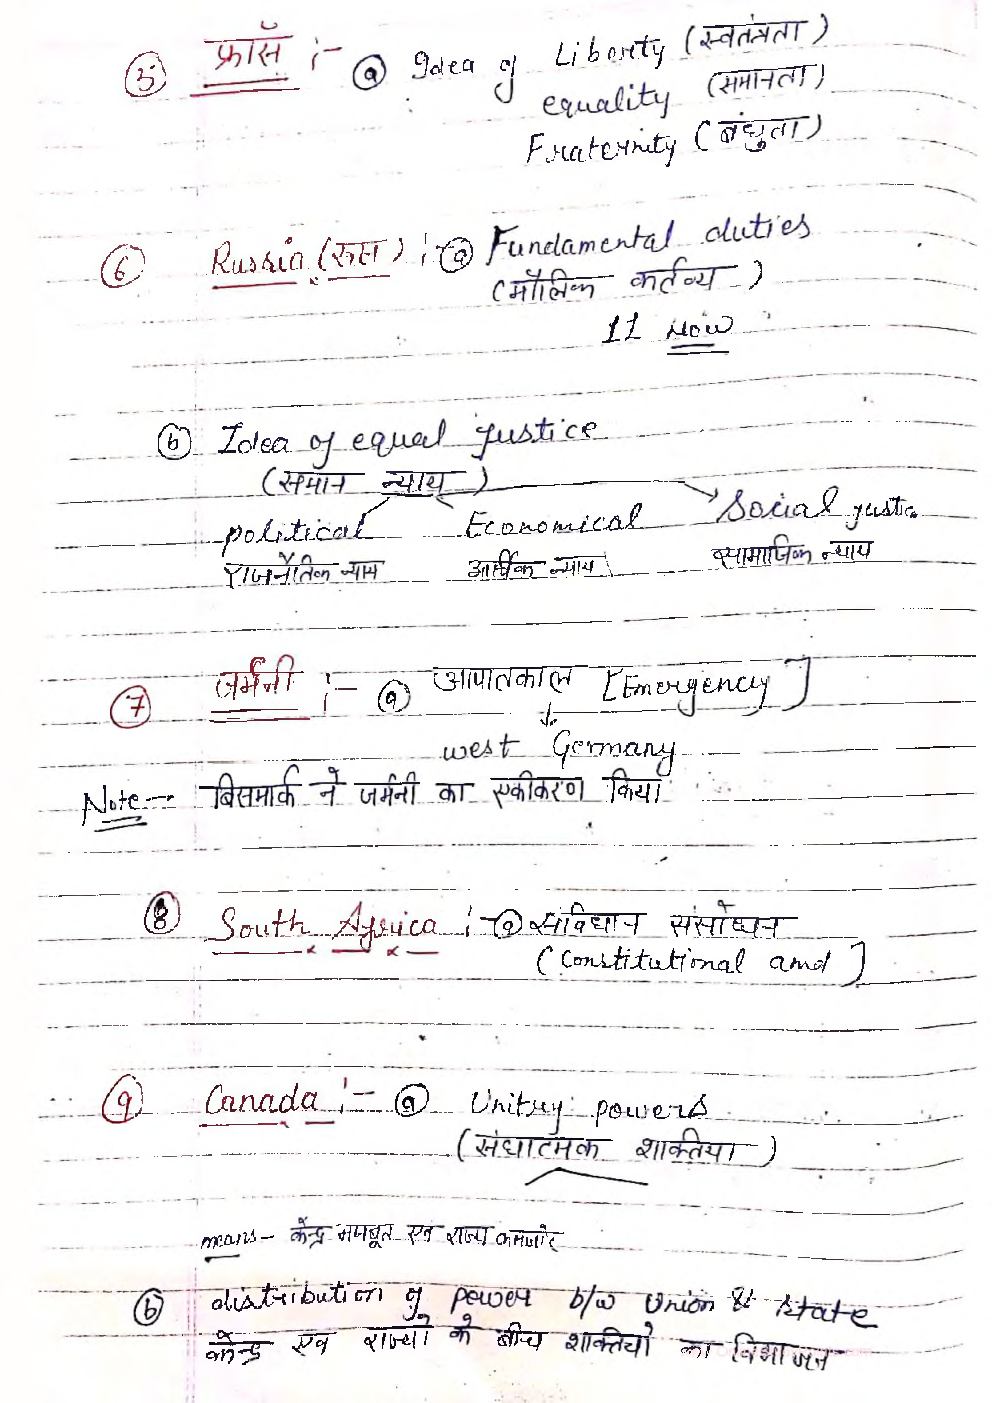 ⑤ फ्रॉस :- ⓐ Idea of Liberty (स्वतंत्रता)
equality (समानता)
Fraternity (बंधुता)
⑥ Russia (रूस) :- ⓐ Fundamental duties
(मौलिक कर्तव्य)
11 Now
ⓑ Idea of equal justice
(समान न्याय)
political Economical Social justice
राजनैतिक न्याय आर्थिक न्याय सामाजिक न्याय
⑦ जर्मनी :- ⓐ आपातकाल [Emergency]
↓
west Germany
Note:- बिसमार्क ने जर्मनी का एकीकरण किया।
⑧ South Africa :- ⓐ संविधान संसोधन
(Constitutional amd]
⑨ Canada :- ⓐ Unitry powers
(संघात्मक शाक्तिया)
means - केन्द्र मजबूत एव राज्य कमजोर
ⓑ distribution of power b/w Union & state
केन्द्र एव राज्यो के बीच शाक्तियो का विभाजन